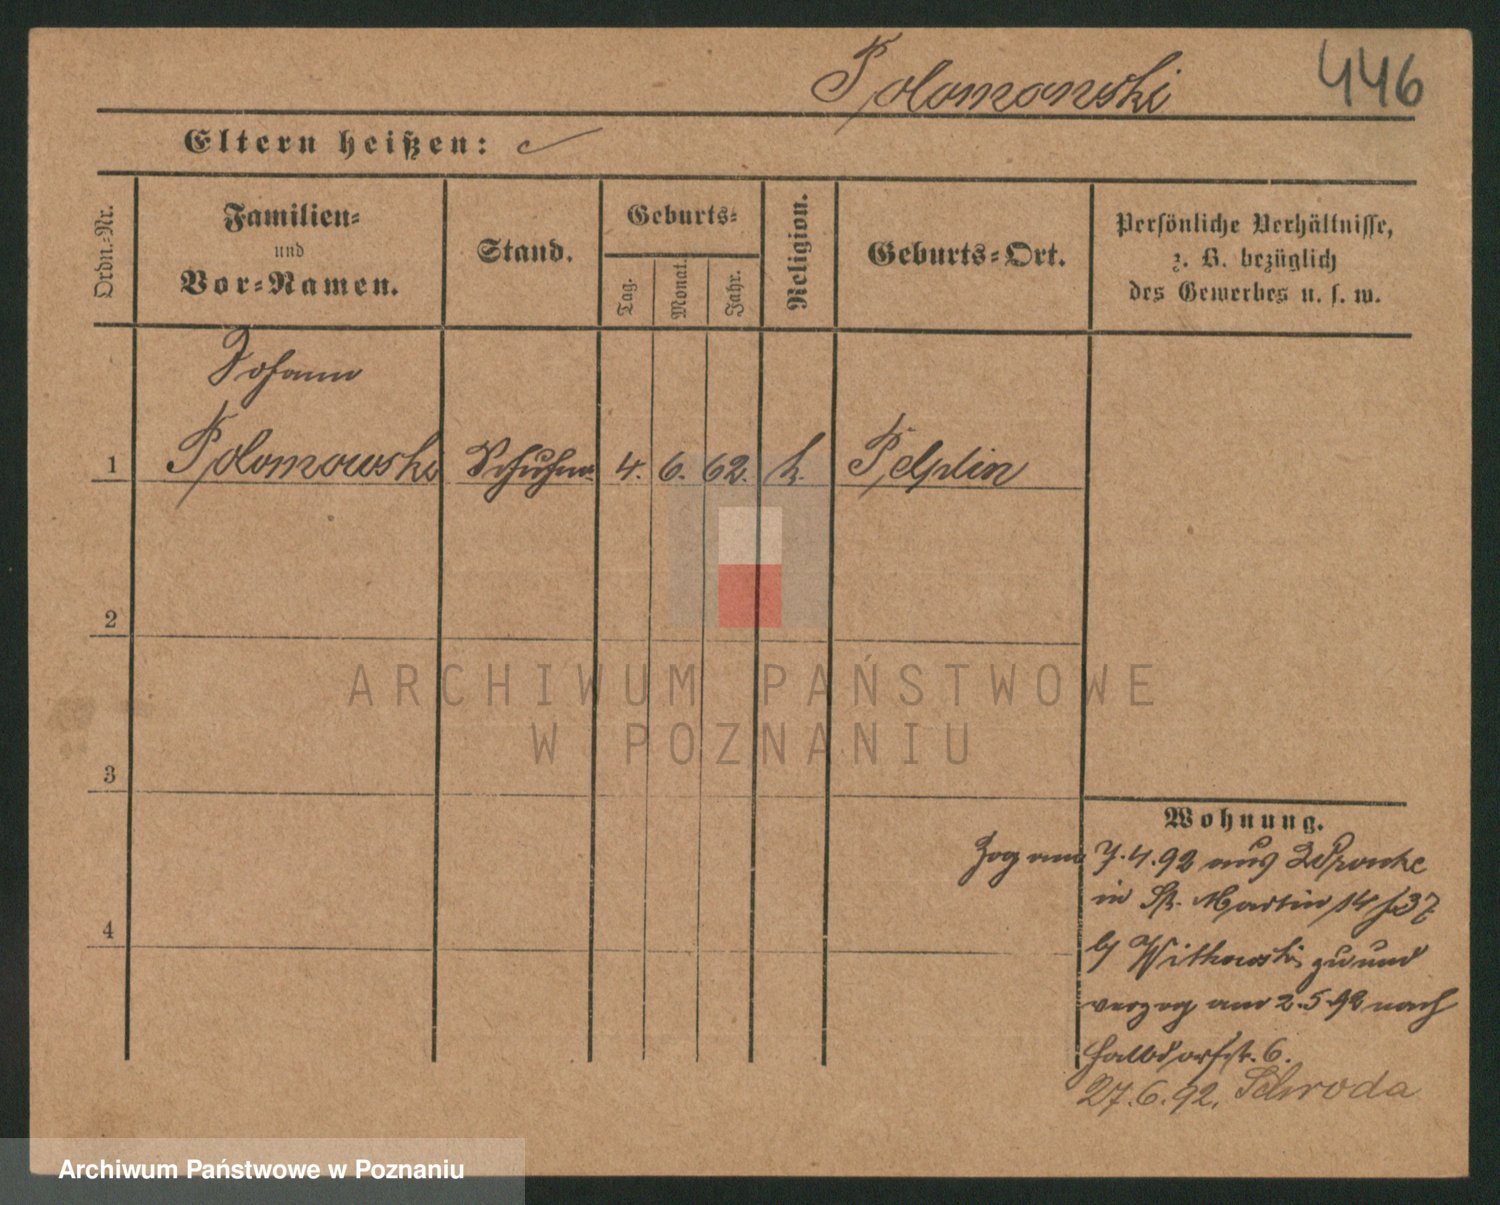 Polomowski 446
Eltern heißen:
Ordn.-Nr.
Familien-
und
Vor-Namen.
Stand.
Geburts-
Tag.
Monat.
Jahr.
Religion.
Geburts-Ort.
Persönliche Verhältnisse,
z. B. bezüglich
des Gewerbes u. s. w.
Johann
1 Polomowski Schuhm. 4. 6. 62. k. Pelplin
2
ARCHIWUM PAŃSTWOWE
W POZNANIU
3
Wohnung.
Zog am 7.4.92 aus Wronke
in St. Martin 14
4
b/ Witkowski zu und
verzog am 2.5.92 nach
Halbdorfstr. 6.
27.6.92. Schroda
Archiwum Państwowe w Poznaniu